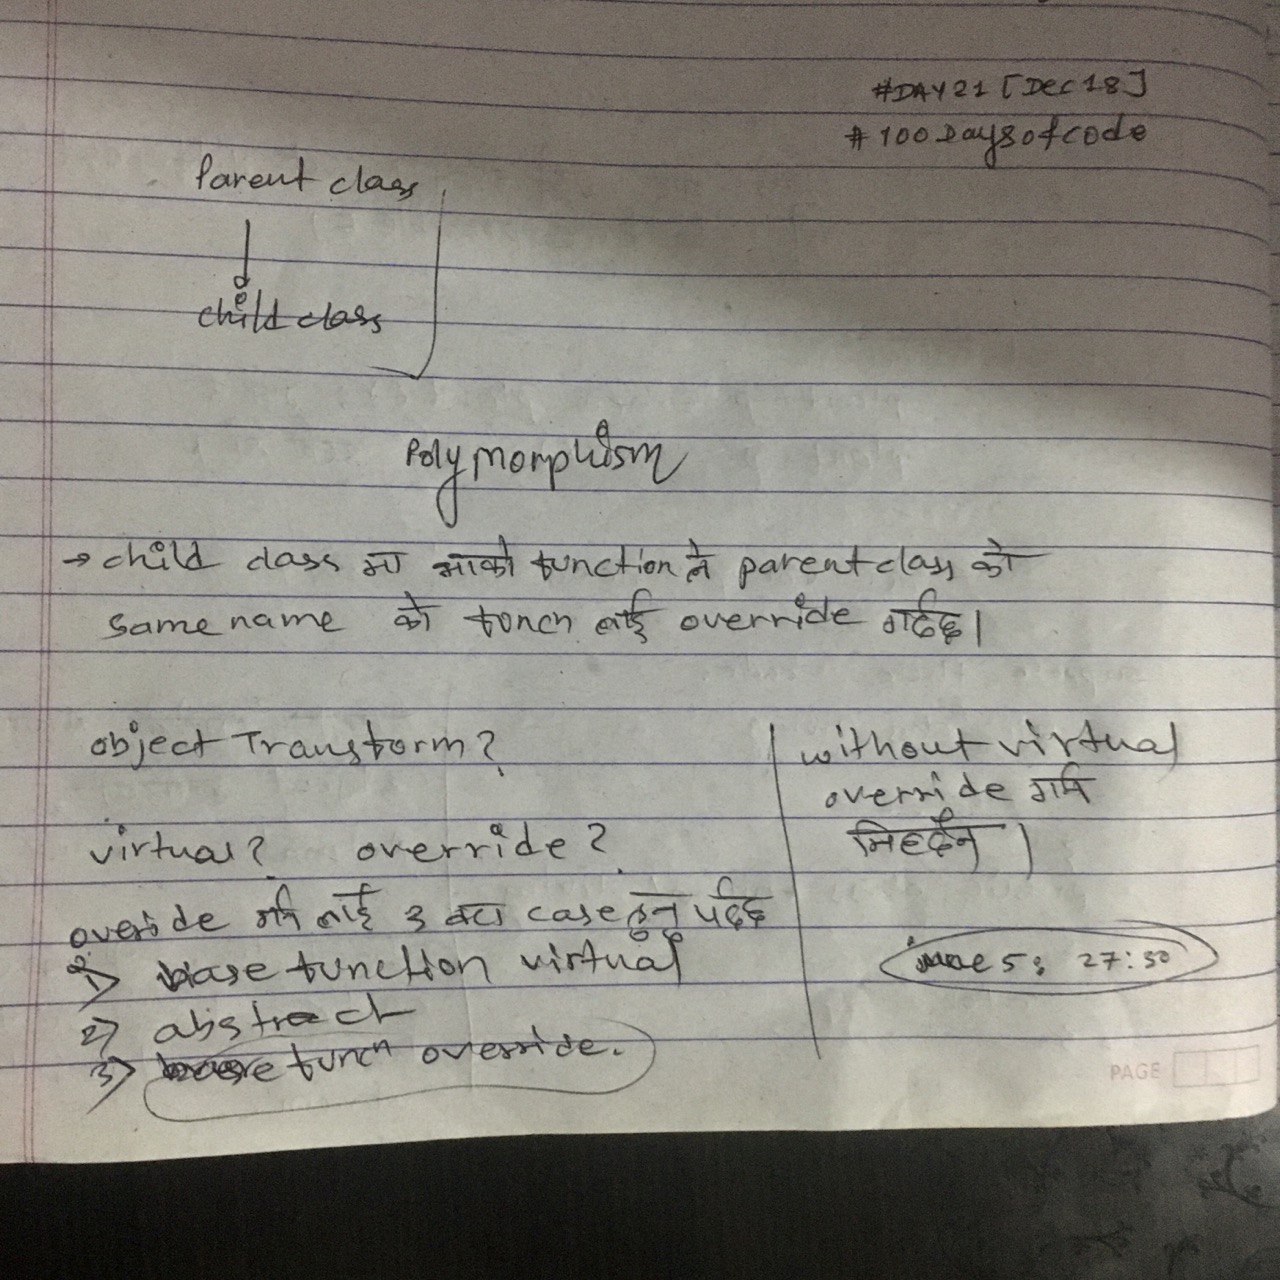 #DAY21 [Dec 18]
# 100 Days of code
Parent class
child class
Polymorphism
→ child class मा आको function ले parent class को
same name को foncn लाई override गर्दछ।
object Transform?
virtual? override?
override गर्न लाई 3 वटा case हुनु पर्दछ
1) base function virtual
2) abstract
3) base funcn override.
without virtual
override गर्न
मिल्दैन।
5: 27:30
PAGE